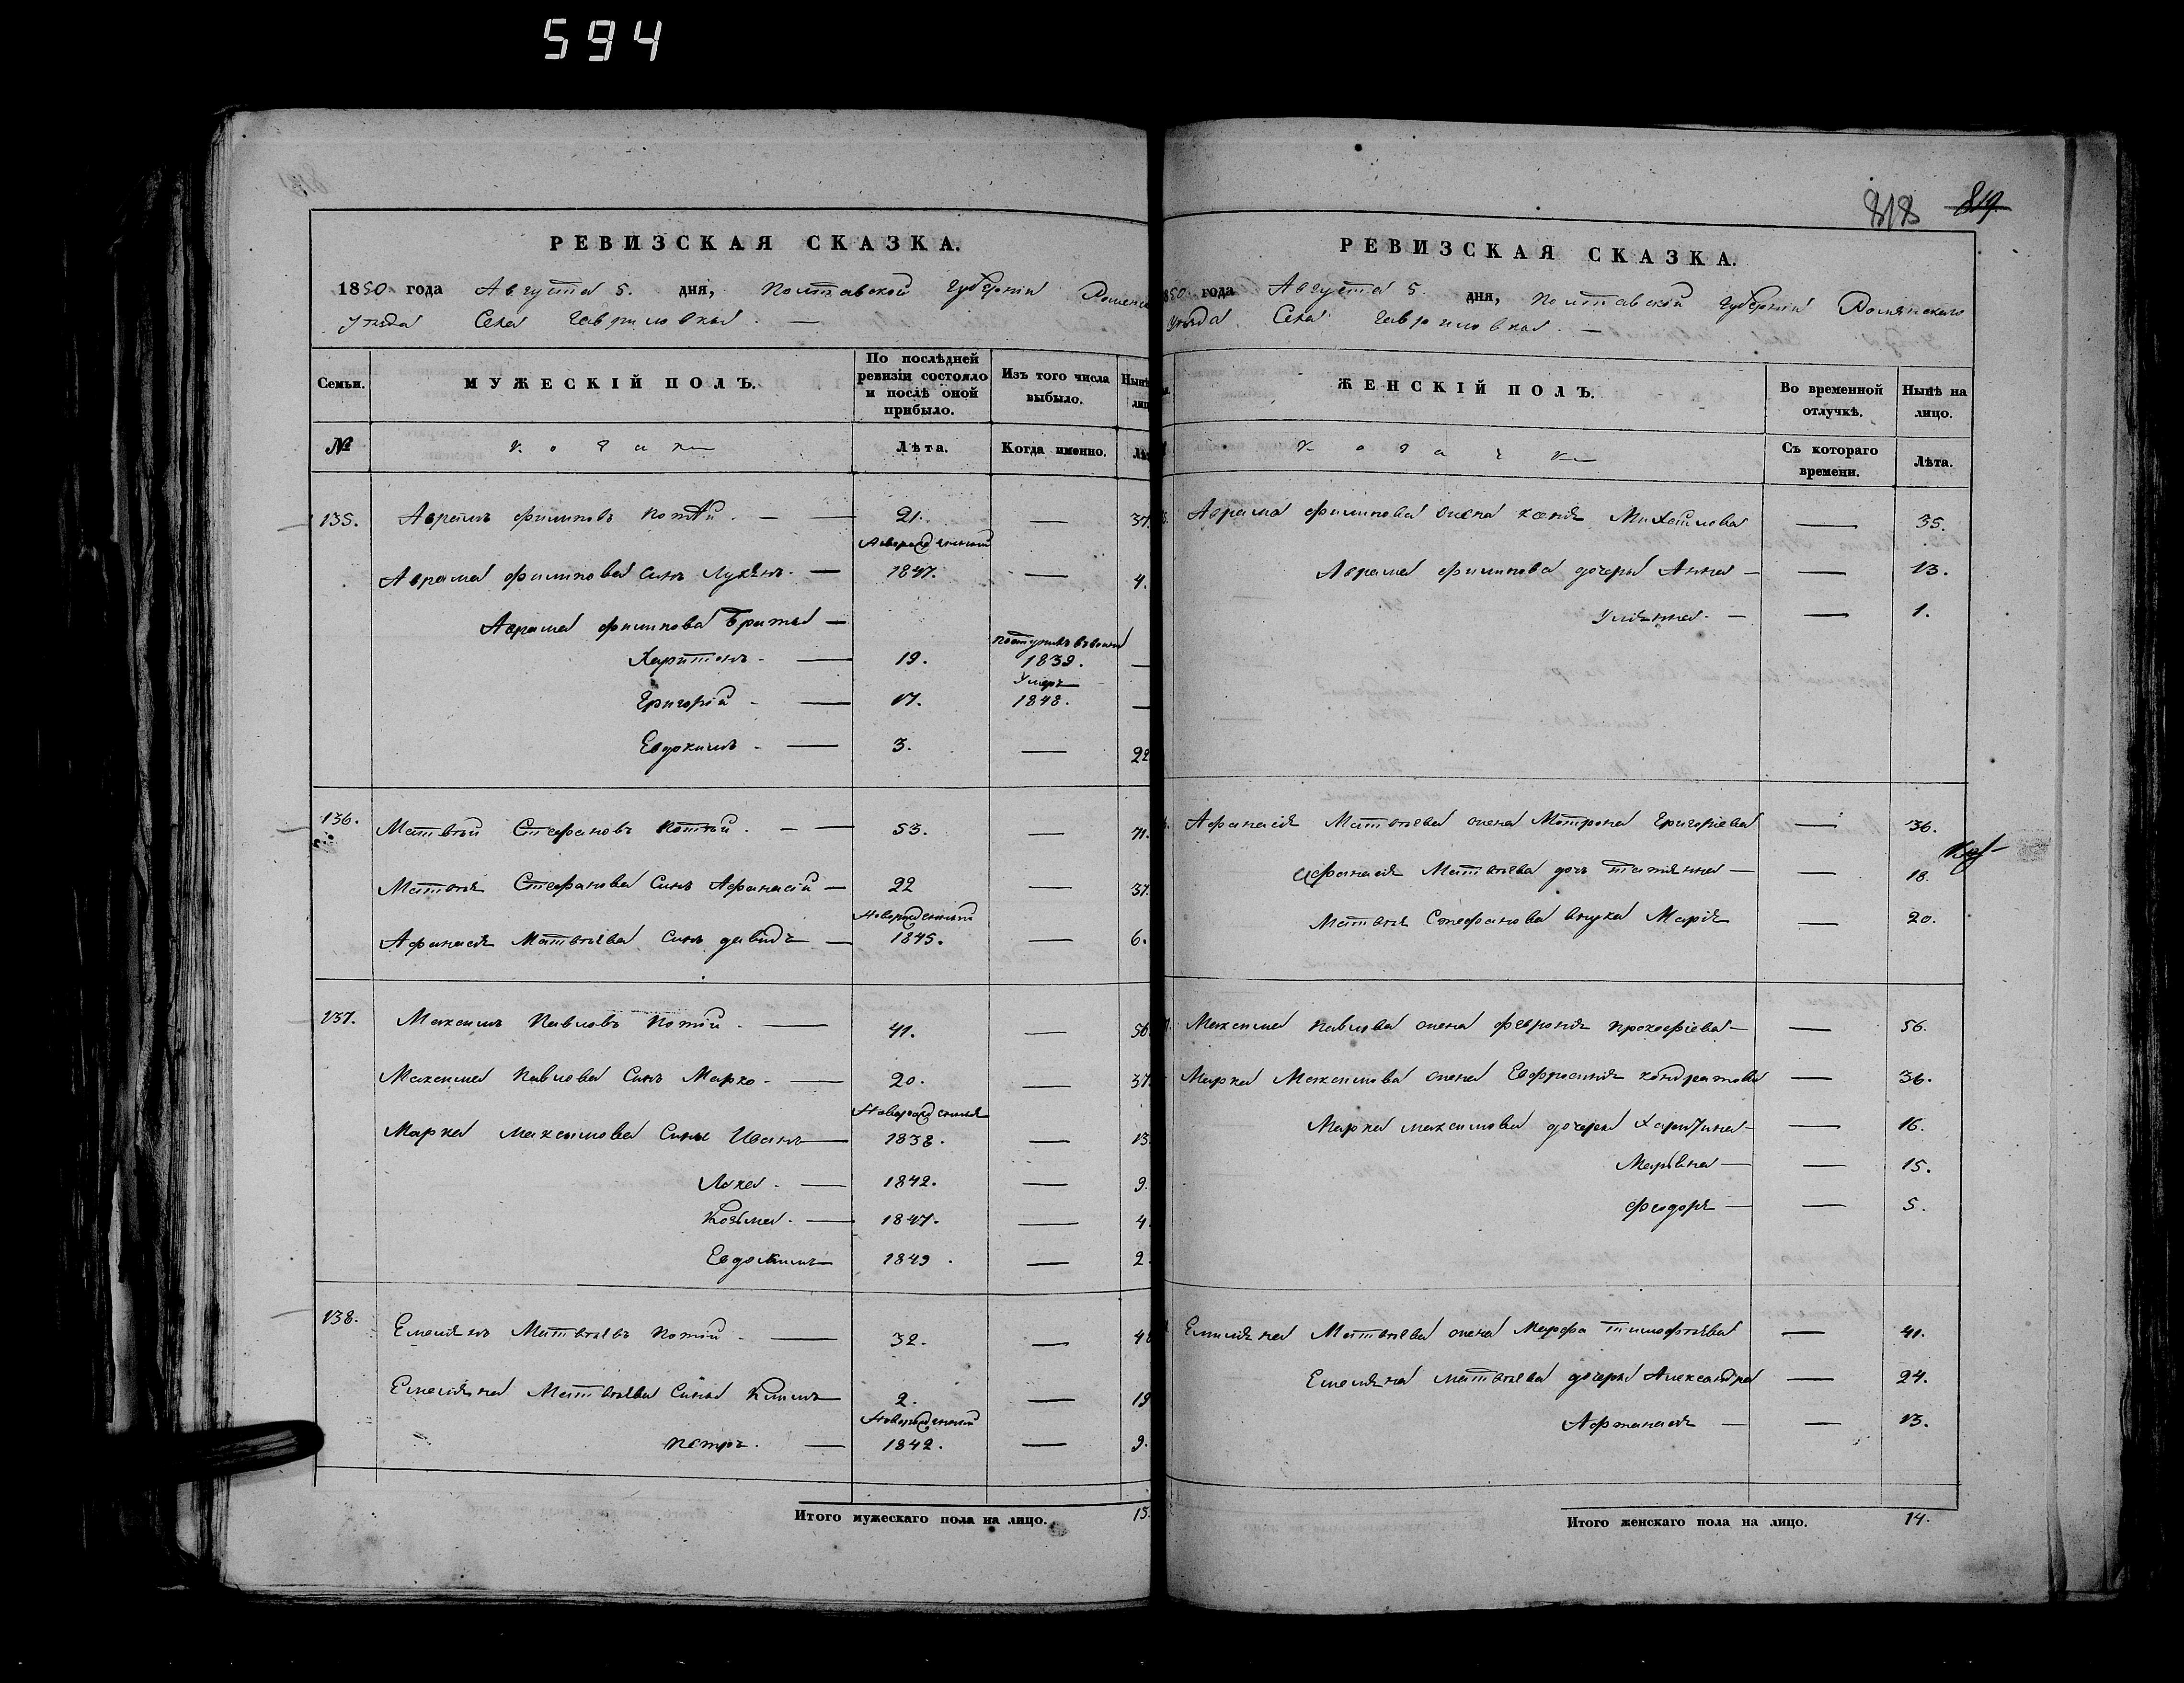 594
818 819
РЕВИЗСКАЯ СКАЗКА.
1850 года Августа 5. дня, Полтавской Губерніи Роменск
уѣзда Села Гавриловки.
Семьи. МУЖЕСКІЙ ПОЛЪ. По послѣдней ревизіи состояло и послѣ оной прибыло. Изъ того числа выбыло. Нынѣ лиц
№ Козаки Лѣта. Когда именно. Лѣ
135. Аврамъ Филиповъ Потѣй. — 21. — 37.
Новорожденный
Аврама Филипова Сынъ Лукянъ. — 1847. — 4.
Аврама Филипова Братья —
Поступилъ
Харитонъ. — 19. 1839. —
Умеръ
Григорій — 17. 1848. —
Евдокимъ — 3. — 22
136. Матвѣй Стефановъ Потѣй. — 53. — 71.
Матвѣя Стефанова Сынъ Афанасій — 22 — 37.
Новорожденный
Афанасія Матвѣева Сынъ Давидъ — 1845. — 6.
137. Максимъ Павловъ Потій. — 41. — 56
Максима Павлова Сынъ Марко. — 20. — 37
Новорожденныя
Марка Максимова Сыны Иванъ — 1838. — 13
Лука. — 1842. — 9.
Козьма. — 1847. — 4
Евдокимъ — 1849. — 2.
138. Емелянъ Матвѣевъ Потій. — 32. — 4
Емеляна Матвѣева Сыны Климъ — 2. — 19
Новорожденный
Петръ. — 1842. — 9.
Итого мужескаго пола на лицо. 15.
РЕВИЗСКАЯ СКАЗКА.
850 года Августа 5. дня, Полтавской Губерніи Роменскаго
Уѣзда Села Гавриловки. —
ЖЕНСКІЙ ПОЛЪ. Во временной отлучкѣ. Нынѣ на лицо.
Козачки Съ котораго времени. Лѣта.
Аврама Филипова жена Ксенія Михайлова — 35.
Аврама Филипова дочери Анна — — 13.
Уліянна. — — 1.
Афанасія Матвѣева жена Мотрона Григоріева — 36.
Афанасія Матвѣева дочь Татіянна — — 18.
Матвѣя Стефанова внука Марія — 20.
Максима Павлова жена Февронія Прокофіева — — 56.
Марка Максимова жена Евфросинія Кондратова — 36.
Марка Максимова дочери Харитина — — 16.
Марвина — — 15.
Феодора — — 5.
Емиляна Матвѣева жена Марфа Тимофѣева — 41.
Емеляна Матвѣева дочери Александра — 24.
Афанасія — — 13.
Итого женскаго пола на лицо. 14.